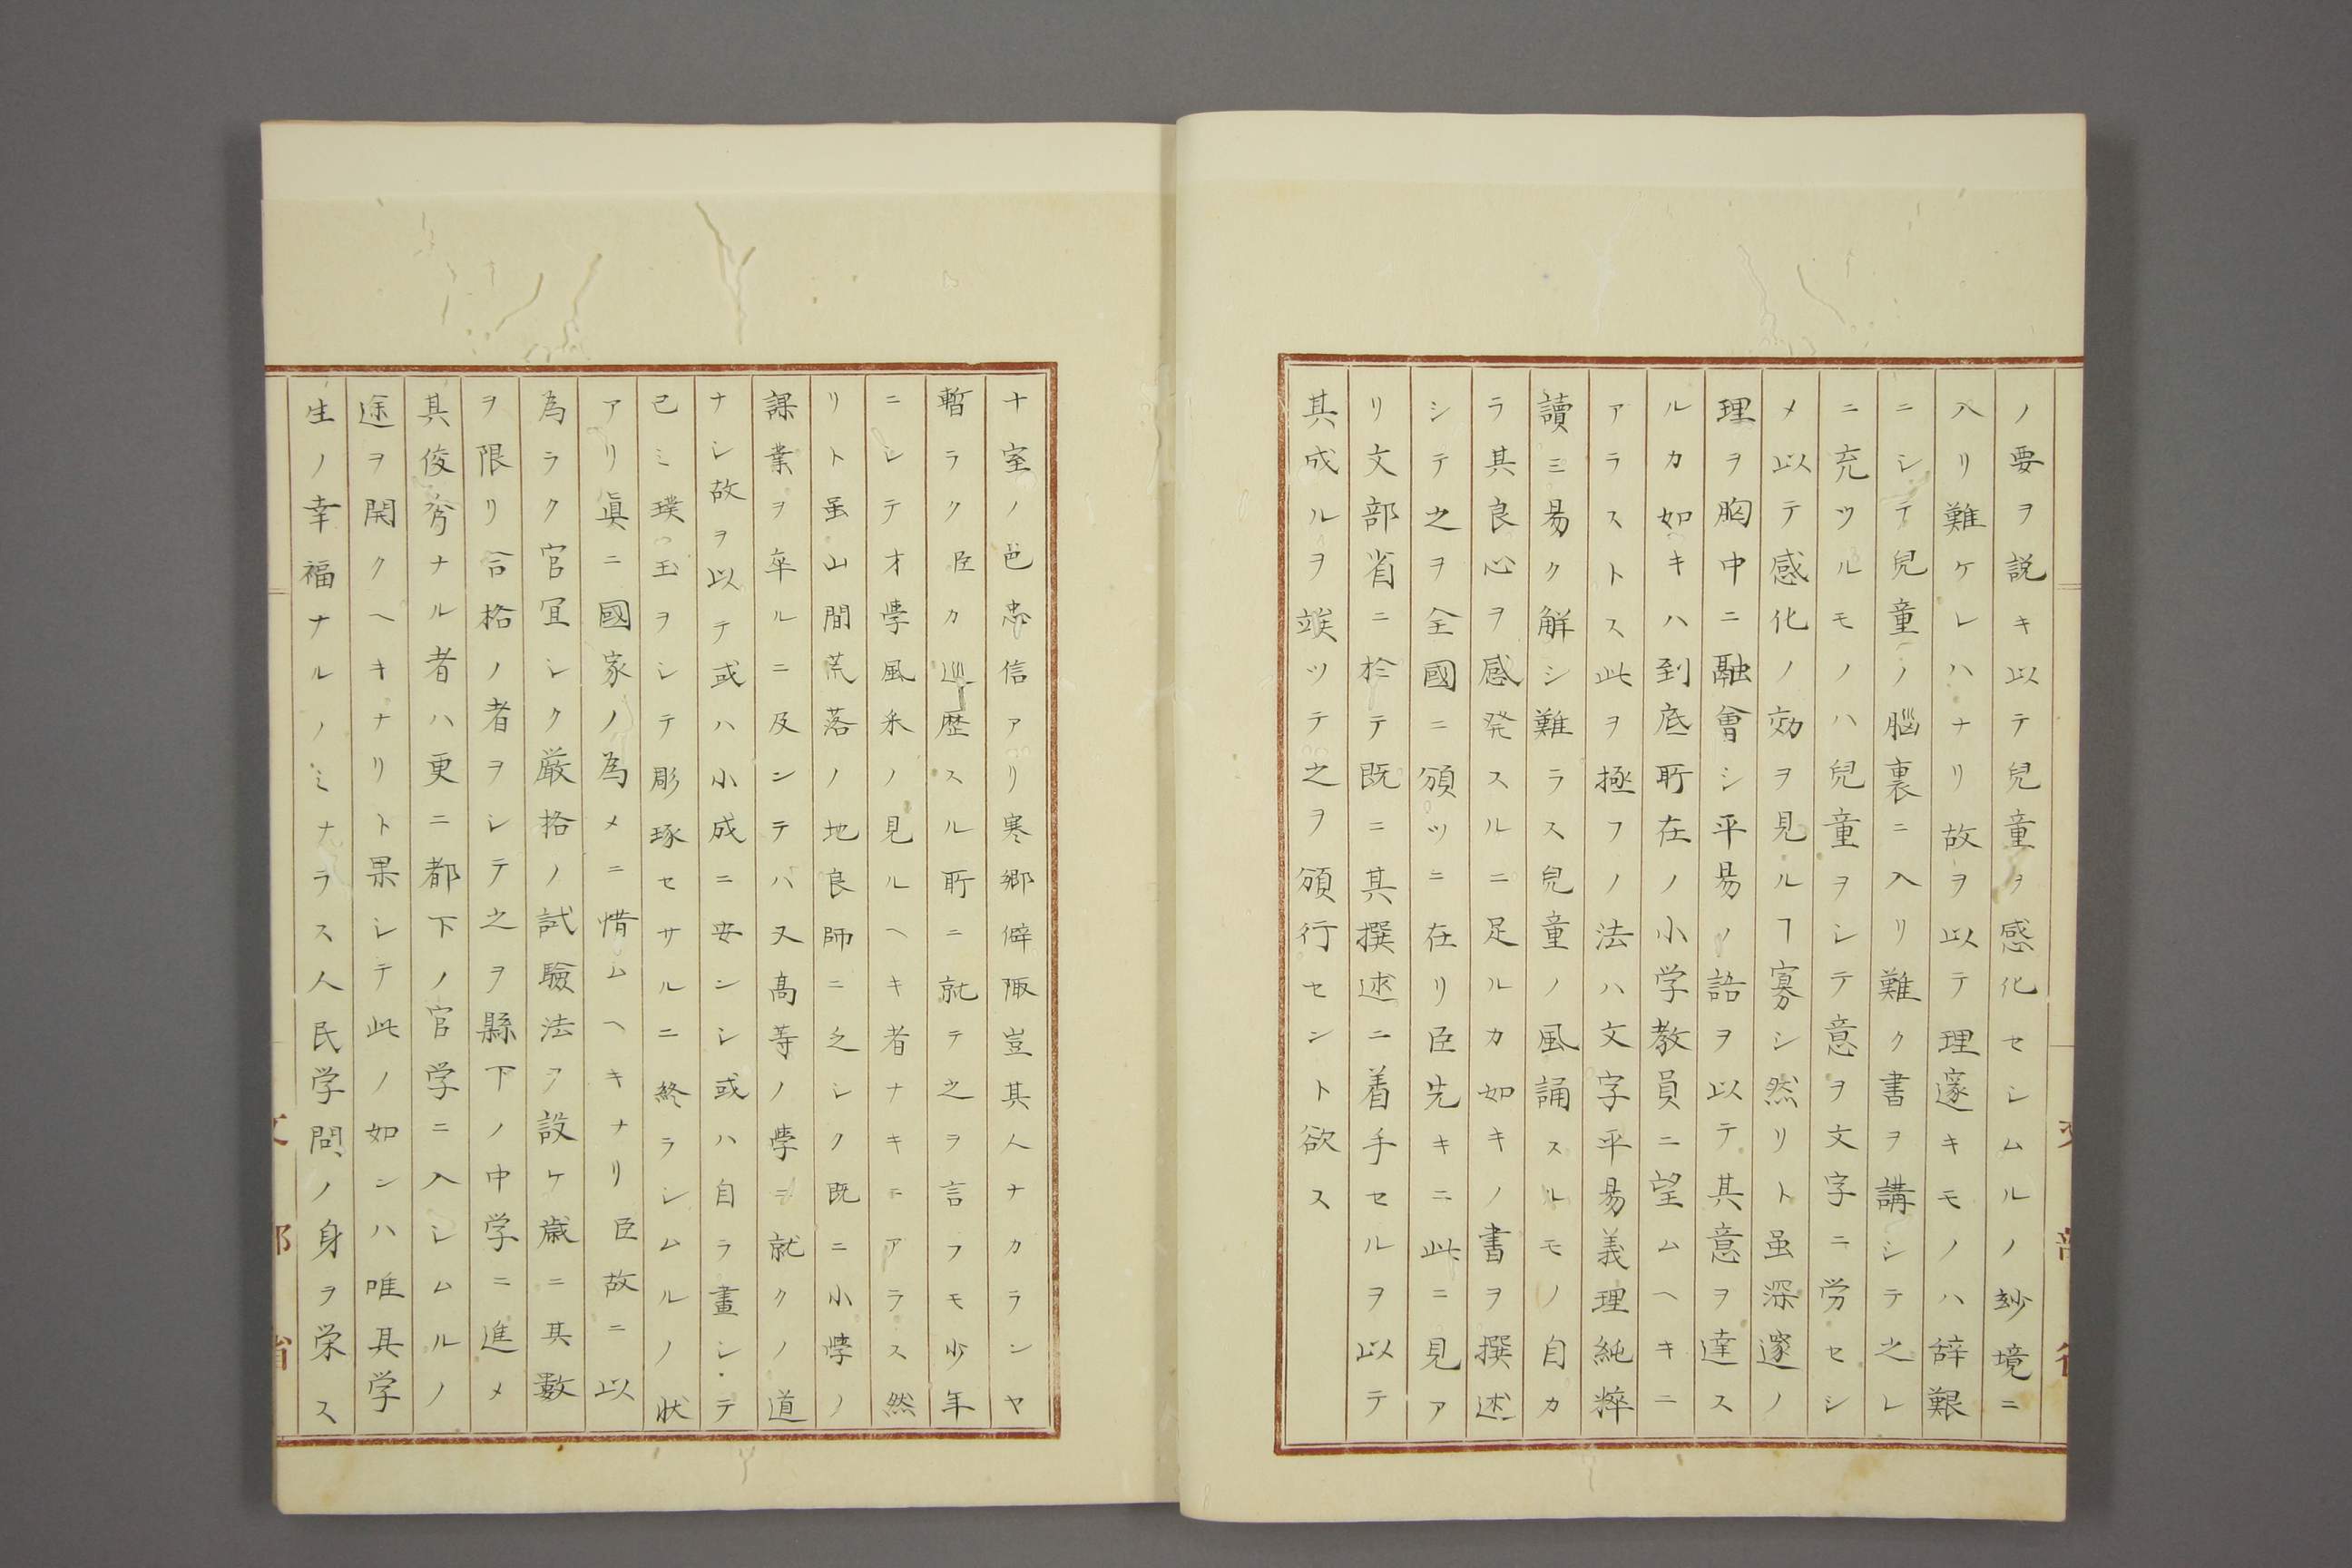 ノ要ヲ説キ以テ兒童ヲ感化セシムルノ妙境ニ
入リ難ケレハナリ故ヲ以テ理邃キモノハ辞艱
ニシテ兒童ノ腦裏ニ入リ難ク書ヲ講シテ之レ
ニ充ツルモノハ兒童ヲシテ意ヲ文字ニ労セシ
メ以テ感化ノ効ヲ見ルヿ寡シ然リト虽深邃ノ
理ヲ胸中ニ融會シ平易ノ語ヲ以テ其意ヲ達ス
ルカ如キハ到底所在ノ小学教員ニ望ムヘキニ
アラストス此ヲ極フノ法ハ文字平易義理純粹
讀ミ易ク解シ難ラス兒童ノ風誦スルモノ自カ
ラ其良心ヲ感発スルニ足ルカ如キノ書ヲ撰述
シテ之ヲ全國ニ頒ツニ在リ臣先キニ此ニ見ア
リ文部省ニ於テ既ニ其撰述ニ着手セルヲ以テ
其成ルヲ竢ツテ之ヲ頒行セント欲ス
十室ノ邑忠信アリ寒郷僻陬豈其人ナカランヤ
暫ラク臣カ巡歴スル所ニ就テ之ヲ言フモ少年
ニシテオ學風釆ノ見ルヘキ者ナキニアラス然
リト虽山間荒落ノ地良師ニ乏シク既ニ小學ノ
課業ヲ卒ルニ及ンテハ又高等ノ學ニ就クノ道
ナシ故ヲ以テ或ハ小成ニ安ンシ或ハ自ラ畫シテ
已ミ璞玉ヲシテ彫琢セサルニ終ラシムルノ状
アリ眞ニ國家ノ為メニ惜ムヘキナリ臣故ニ以
為ラク官冝シク厳格ノ試驗法ヲ設ケ歳ニ其數
ヲ限リ合格ノ者ヲシテ之ヲ縣下ノ中学ニ進メ
其俊秀ナル者ハ更ニ都下ノ官学ニ入シムルノ
途ヲ開クヘキナリト果シテ此ノ如ンハ唯其学
生ノ幸福ナルノミナラス人民学問ノ身ヲ栄ス
文部省